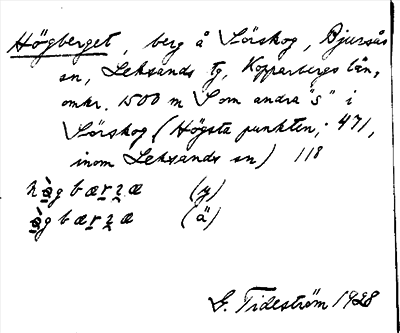 Högberget, berg å Sörskog, Bjursås
sn, Leksands tg, Kopparbergs län,
omkr. 1500 m S om andra "s" i
Sörskog (Högsta punkten, 471,
inom Leksands sn) 118
hὰg bærzæ (y)
ὰg bærzæ (ä)
G. Tideström 1928